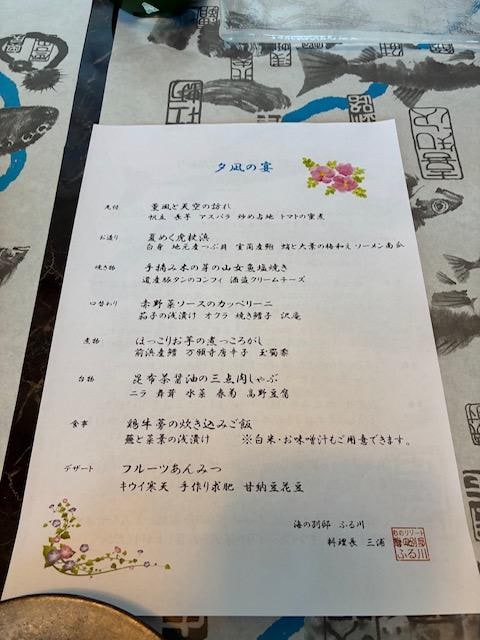 夕凪の宴
先付 薫風と天空の訪れ
帆立 長芋 アスパラ 炒め占地 トマトの蜜煮
お造り 夏めく虎杖浜
白身 地元産つぶ貝 室蘭産鮪 蛸と大葉の梅和え ソーメン南瓜
焼き物 手摘み木の芽の山女魚塩焼き
道産豚タンのコンフィ 酒盗クリームチーズ
口替わり 赤野菜ソースのカッペリーニ
茄子の浅漬け オクラ 焼き鱈子 沢庵
煮物 ほっこりお芋の煮っころがし
前浜産鱈 万願寺唐辛子 玉蜀黍
台物 昆布茶醤油の三点肉しゃぶ
ニラ 舞茸 水菜 春菊 高野豆腐
食事 鶏牛蒡の炊き込みご飯
蕪と菜葉の浅漬け ※白米・お味噌汁もご用意できます。
デザート フルーツあんみつ
キウイ寒天 手作り求肥 甘納豆花豆
海の別邸 ふる川
料理長 三浦
海の別邸
ふる川